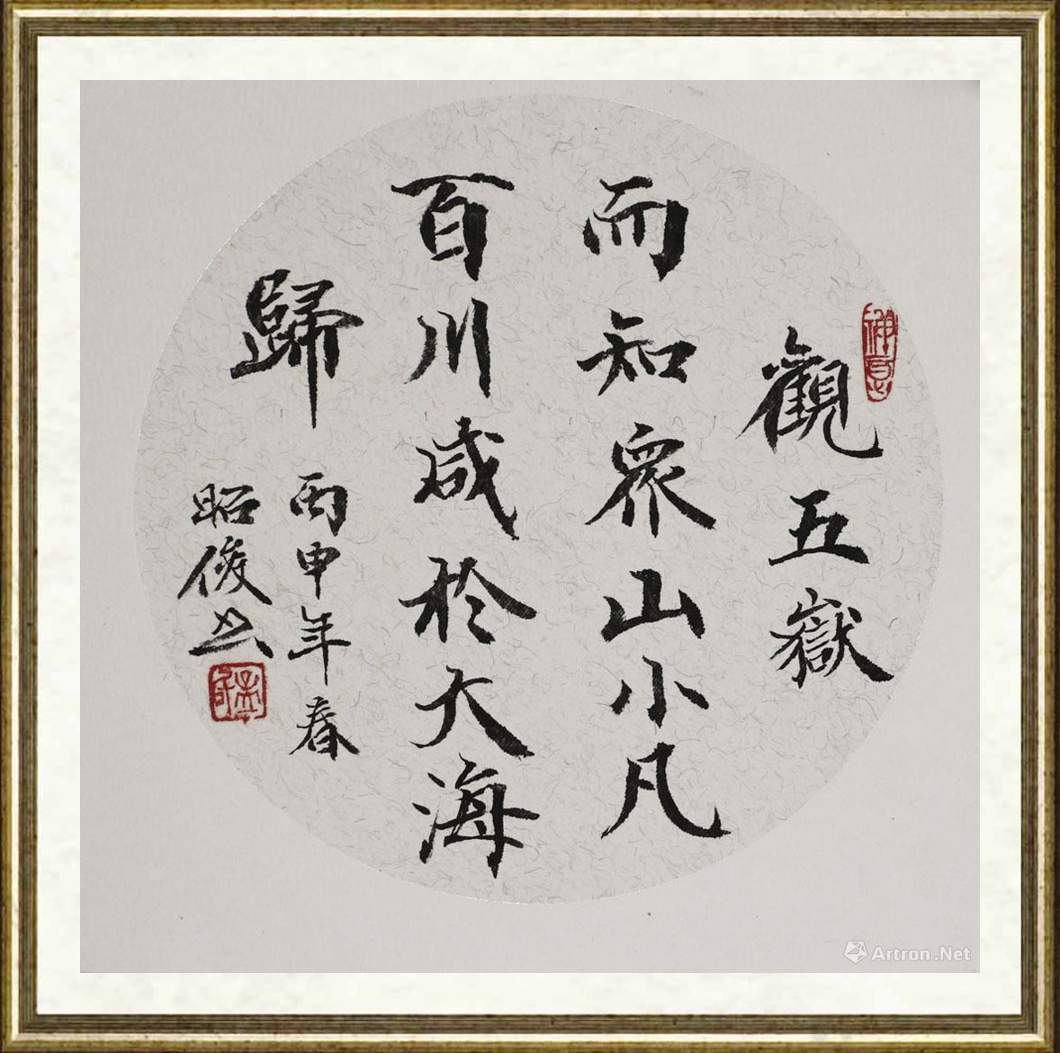 觀五嶽
而知衆山小凡
百川咸於大海
歸
丙申年春
昭俊书
Artron.Net